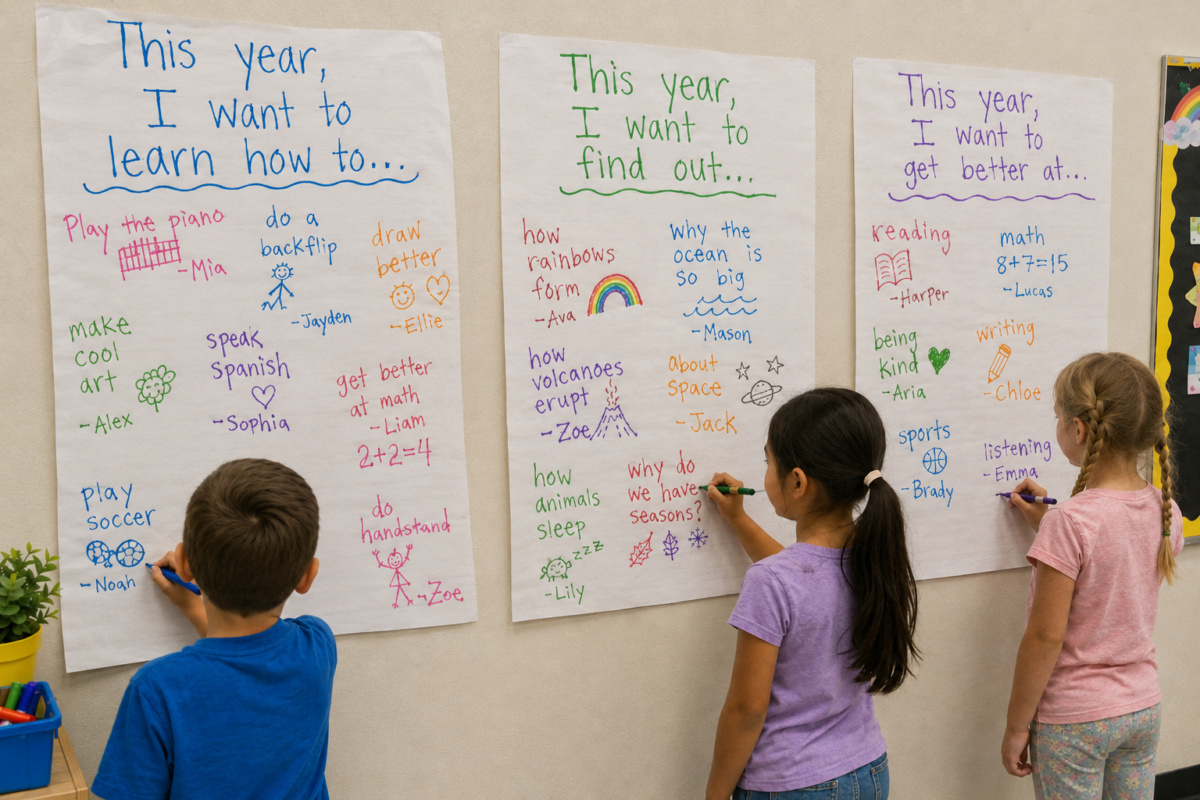 This year,
I want to
learn how to...
Play the piano
-Mia
do a
backflip
-Jayden
draw
better
-Ellie
make
cool
art
-Alex
speak
Spanish
-Sophia
get better
at math
-Liam
2+2=4
play
soccer
-Noah
do
handstand
-Zoe
This year,
I want to
find out...
how
rainbows
form
-Ava
why the
ocean is
so big
-Mason
how
volcanoes
erupt
-Zoe
about
space
-Jack
how
animals
sleep
zzz
-Lily
why do
we have
seasons?
This year,
I want to
get better at...
reading
-Harper
math
8+7=15
-Lucas
being
kind
-Aria
writing
-Chloe
sports
-Brady
listening
-Emma